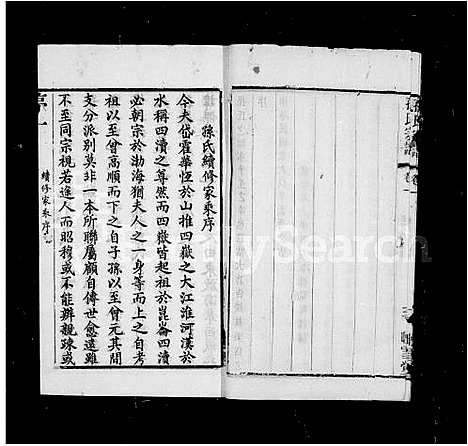 孫氏續修家乘序
今夫岱霍華恆於山推四嶽之大江淮河漢於
水稱四瀆之尊然而四嶽皆起祖於崑崙四瀆
必朝宗於渤海猶夫人之一身等而上之自考
祖以至曾高順而下之自子孫以至曾元其間
支分派別莫非一本所聯屬顧自傳世愈遠雖
不至同宗視若途人而昭穆或不能辨親疎或
續修家乘序
FamilySearch